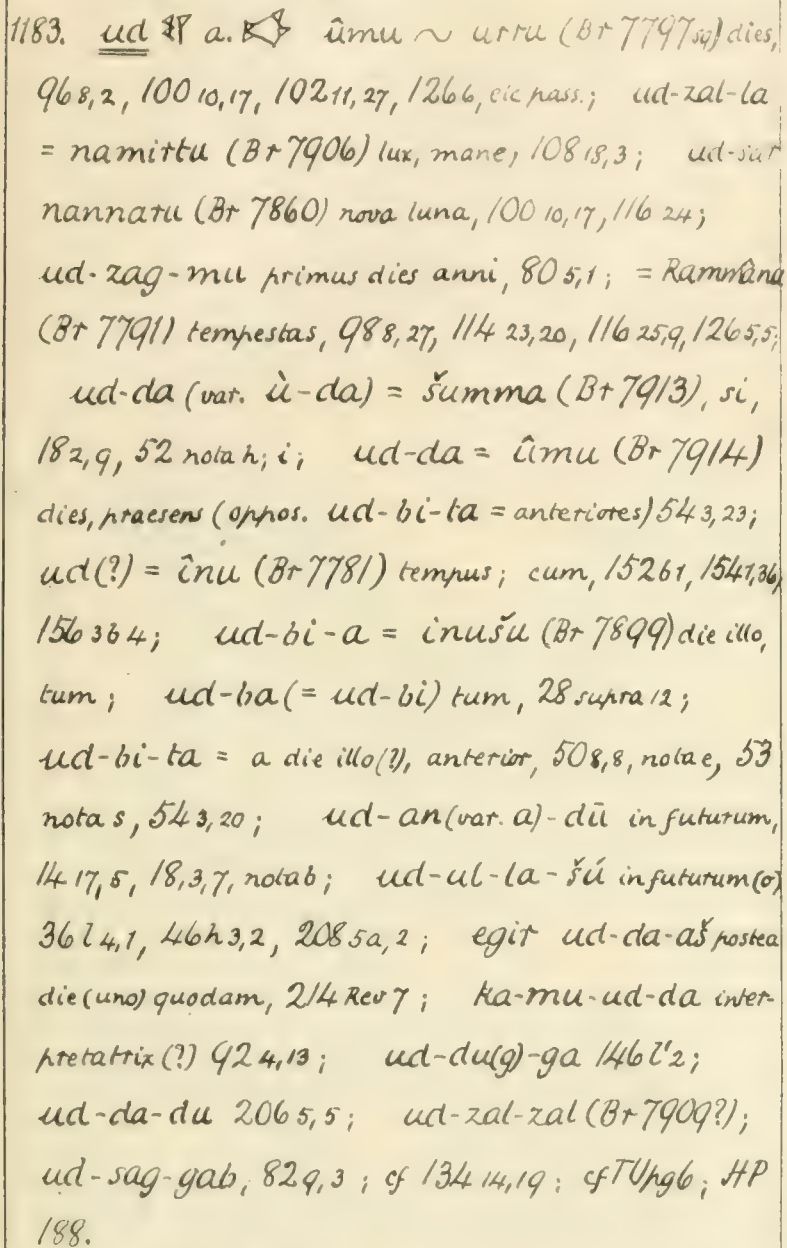 1183. ud 𒌓 a. ûmu ~ urru (Br 7797sq) dies,
96 8,2, 100 10,17, 102 11,27, 126 6, etc pass.; ud-zal-la
= namirtu (Br 7906) lux, mane, 108 18,3; ud-sar
nannaru (Br 7860) nova luna, 100 10,17, 116 24;
ud-zag-mu primus dies anni, 80 5,1; = Rammâna
(Br 7791) tempestas, 98 8,27, 114 23,20, 116 25,9, 126 5,5;
ud-da (var. ù-da) = šumma (Br 7913), si,
18 2,9, 52 nota h; i; ud-da = ûmu (Br 7914)
dies, praesens (oppos. ud-bi-ta = anteriores) 54 3,23;
ud(?) = înu (Br 7781) tempus; cum, 152 61, 154 1,36,
156 36 4; ud-bi-a = inušu (Br 7899) die illo,
tum; ud-ba (= ud-bi) tum, 28 supra 12;
ud-bi-ta = a die illo(?), anterior, 50 8,8, nota e, 53
nota s, 54 3,20; ud-an(var. a)-dū in futurum,
14 17,5, 18,3,7, nota b; ud-ul-la-šú in futurum(o)
36 l 4,1, 46 h 3,2, 208 5a,2; egir ud-da-aš postea
die (uno) quodam, 214 Rev 7; ka-mu-ud-da inter-
pretatrix (?) 92 4,13; ud-du(g)-ga 146 l'2;
ud-da-du 206 5,5; ud-zal-zal (Br 7909?);
ud-sag-gab, 82 9,3; cf 134 14,19; cf TU pg 6; HP
188.